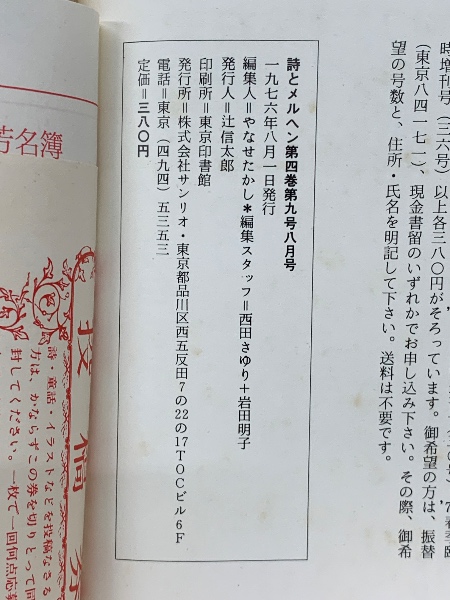 時増刊号（三六号）以上各三八〇円がそろっています。御希望の方は、振替
（東京八四一七一）、現金書留のいずれかでお申し込み下さい。その際、御希
望の号数と、住所・氏名を明記して下さい。送料は不要です。
詩とメルヘン第四巻第九号八月号
一九七六年八月一日発行
編集人＝やなせたかし＊編集スタッフ＝西田さゆり＋岩田明子
発行人＝辻信太郎
印刷所＝東京印書館
発行所＝株式会社サンリオ・東京都品川区西五反田7の22の17TOCビル6F
電話＝東京（四九四）五三五三
定価＝三八〇円
芳名簿
投稿券
詩・童話・イラストなどを投稿なさる
方は、かならずこの券を切りとって同
封してください。一枚で一回何点応募